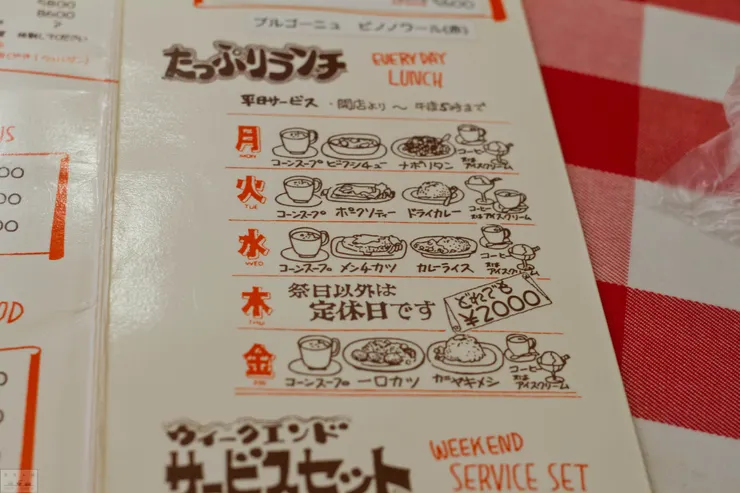 5800
8600
ブルゴーニュ ピノノワール(赤)
たっぷりランチ
EVERYDAY
LUNCH
平日サービス・開店より〜午後5時まで
月
MON
コーンスープ ビーフシチュー ナポリタン コーヒー
または
アイスクリーム
火
TUE
コーンスープ ポークソティー ドライカレー コーヒー
またはアイスクリーム
水
WED
コーンスープ メンチカツ カレーライス コーヒー
または
アイスクリーム
木
THU
祭日以外は
定休日です
どれでも
¥2000
金
FRI
コーンスープ 一口カツ カニヤキメシ コーヒー
または
アイスクリーム
ウィークエンド
サービスセット
WEEKEND
SERVICE SET